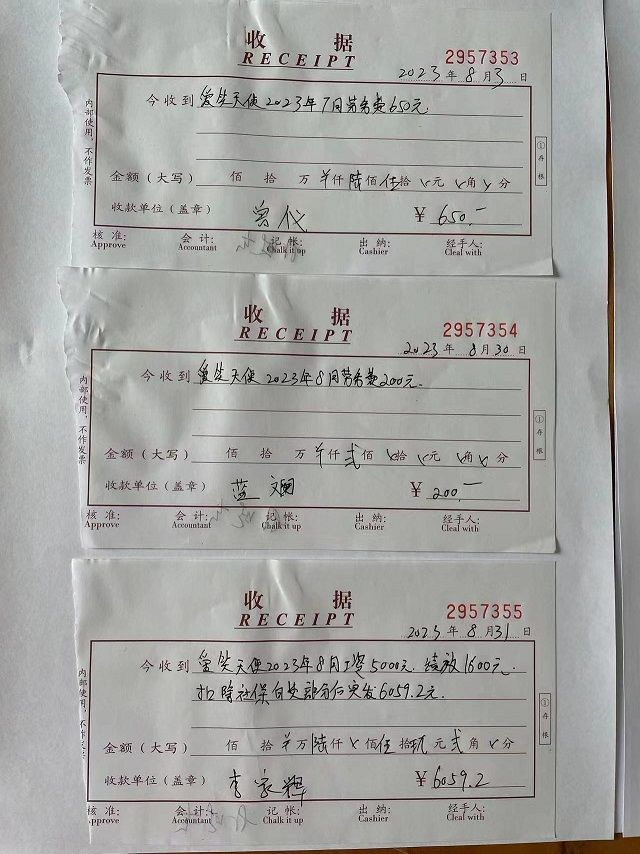 收 据
RECEIPT
2957353
2023年8月3日
今收到 爱笑天使2023年7月劳务费650元
金额（大写） 佰 拾 万 ¥仟陆佰伍拾 元 角 分
收款单位（盖章） 曾仪 ¥ 650.—
核 准: 会 计: 记 帐: 出 纳: 经手人:
Approve Accountant Chalk it up Cashier Cleal with
内部使用，不作发票
①存根
收 据
RECEIPT
2957354
2023年8月30日
今收到 爱笑天使2023年8月劳务费200元.
金额（大写） 佰 拾 万 ¥仟贰佰 拾 元 角 分
收款单位（盖章） 蓝 ¥ 200.—
核 准: 会 计: 记 帐: 出 纳: 经手人:
Approve Accountant Chalk it up Cashier Cleal with
内部使用，不作发票
①存根
收 据
RECEIPT
2957355
2023年8月31日
今收到 爱笑天使2023年8月工资5000元. 绩效1600元.
扣除社保自费部分后实发6059.2元.
金额（大写） 佰 拾¥万陆仟 佰伍拾玖元贰角 分
收款单位（盖章） 李家辉 ¥6059.2
核 准: 会 计: 记 帐: 出 纳: 经手人:
Approve Accountant Chalk it up Cashier Cleal with
内部使用，不作发票
①存根